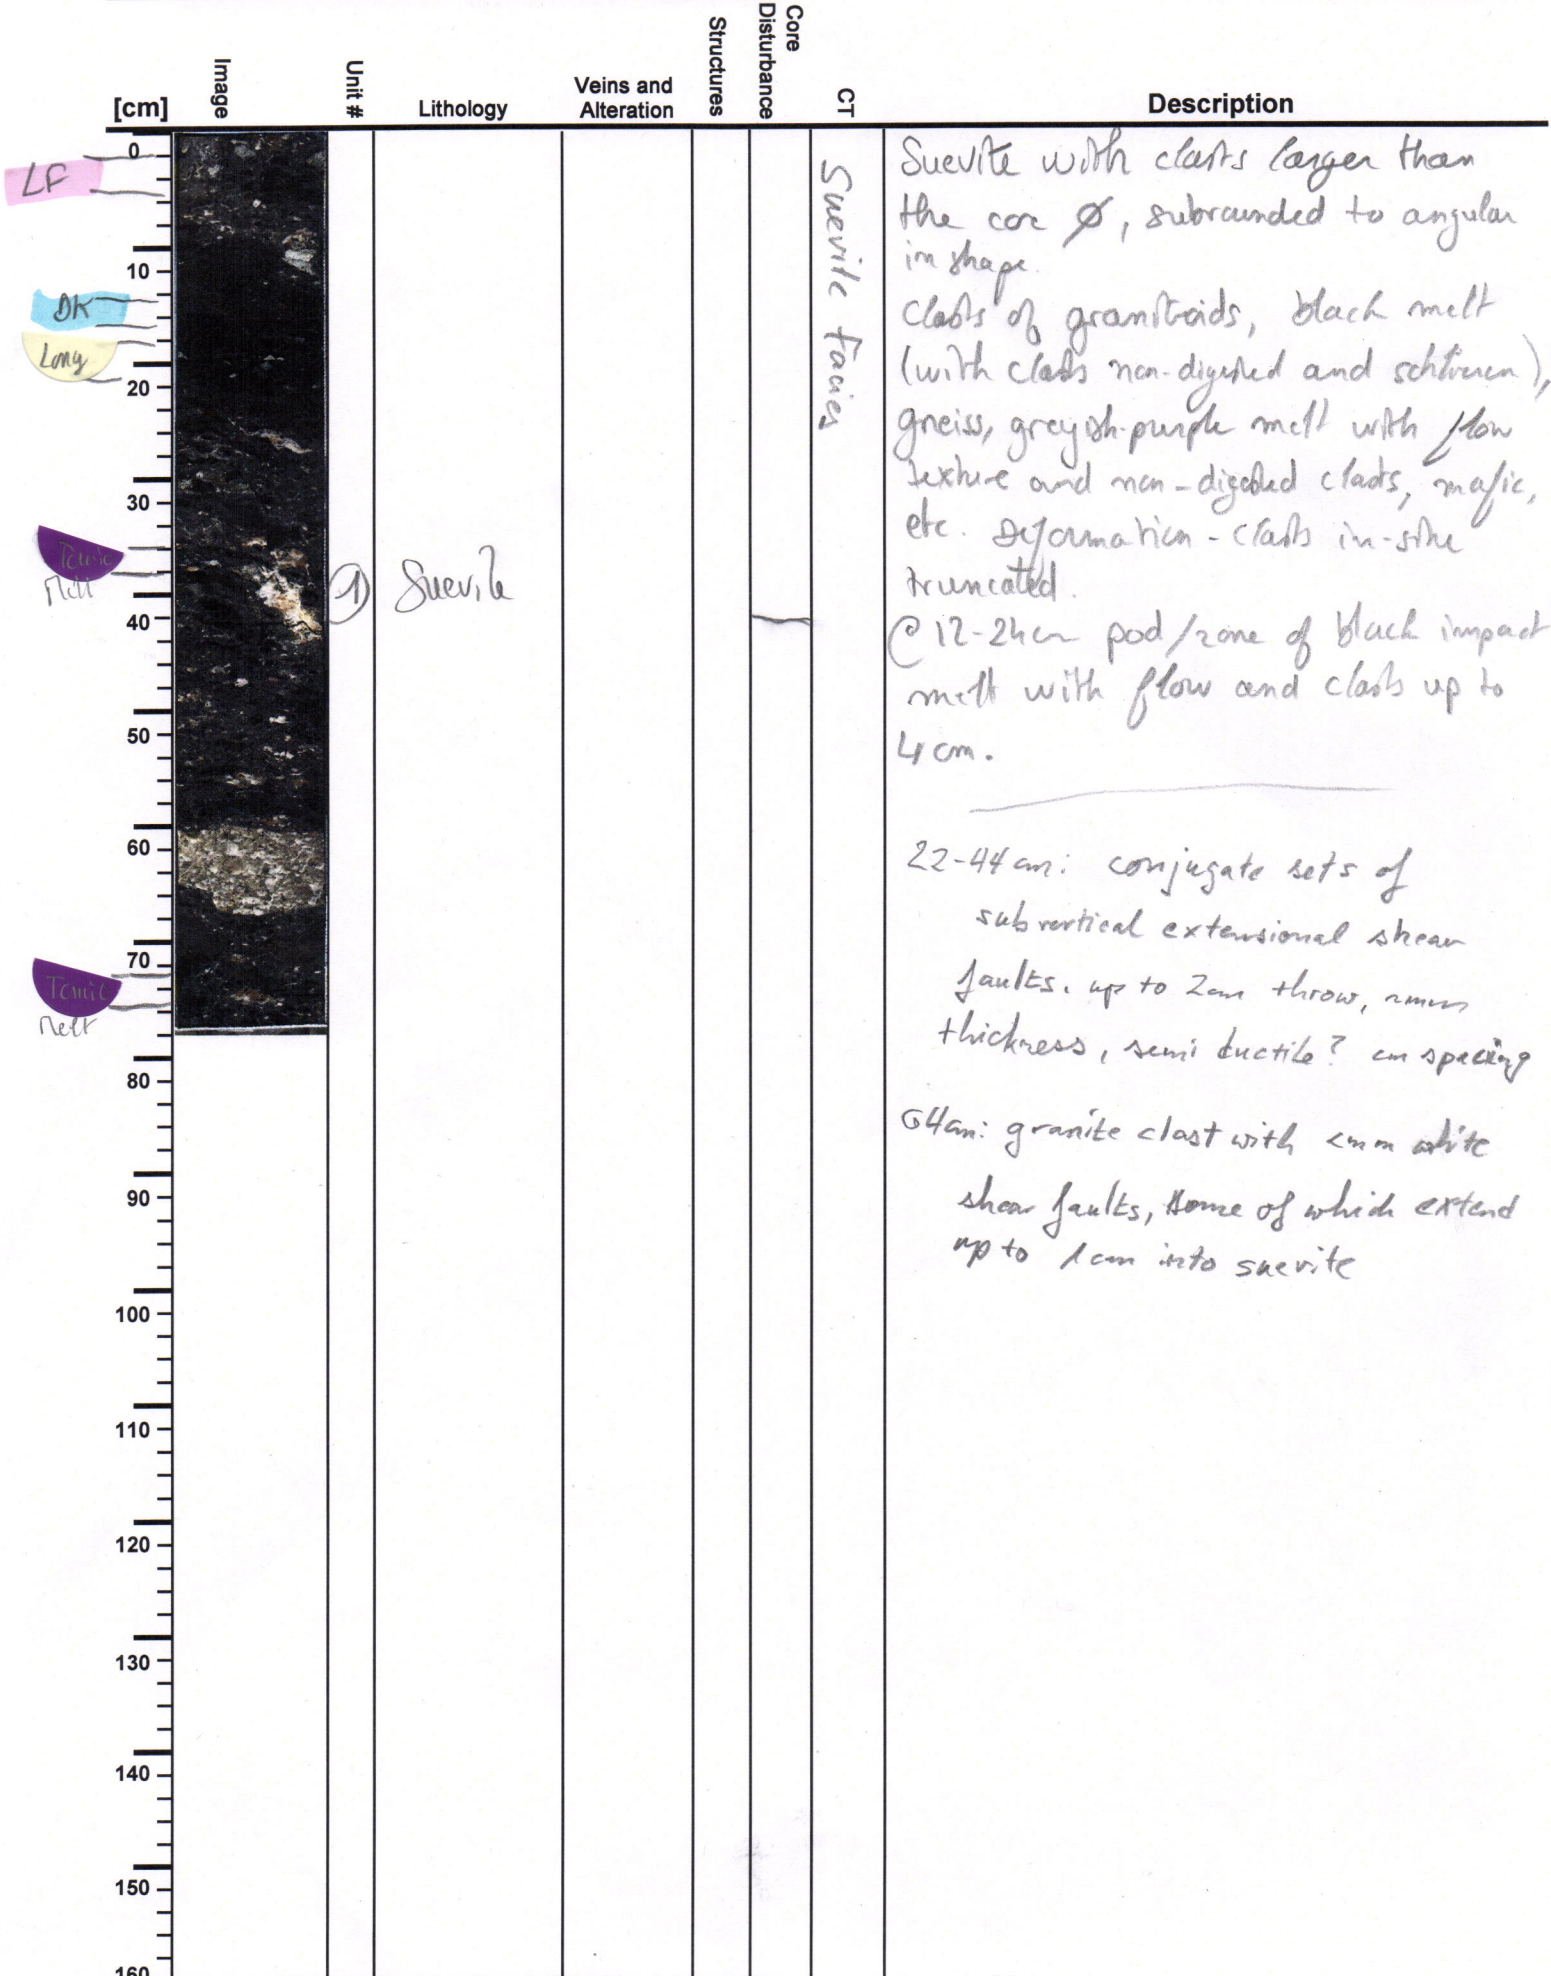 [cm]
Image
Unit #
Lithology
Veins and
Alteration
Structures
Core
Disturbance
CT
Description
0
10
20
30
40
50
60
70
80
90
100
110
120
130
140
150
160
LF
DK
Long
Tomic
Melt
Tomic
Melt
1
Suevite
Suevite facies
Suevite with clasts larger than
the core Ø, subrounded to angular
in shape.
Clasts of granitoids, black melt
(with clasts non-digested and schlieren),
gneiss, greyish-purple melt with flow
texture and non-digested clasts, mafic,
etc. Deformation - clasts in-situ
truncated.
@ 12-24cm pod/zone of black impact
melt with flow and clasts up to
4 cm.
22-44 cm: conjugate sets of
subvertical extensional shear
faults. up to 2cm throw,
thickness, semi ductile? cm spacing
64cm: granite clast with <mm white
shear faults, some of which extend
up to 1cm into suevite